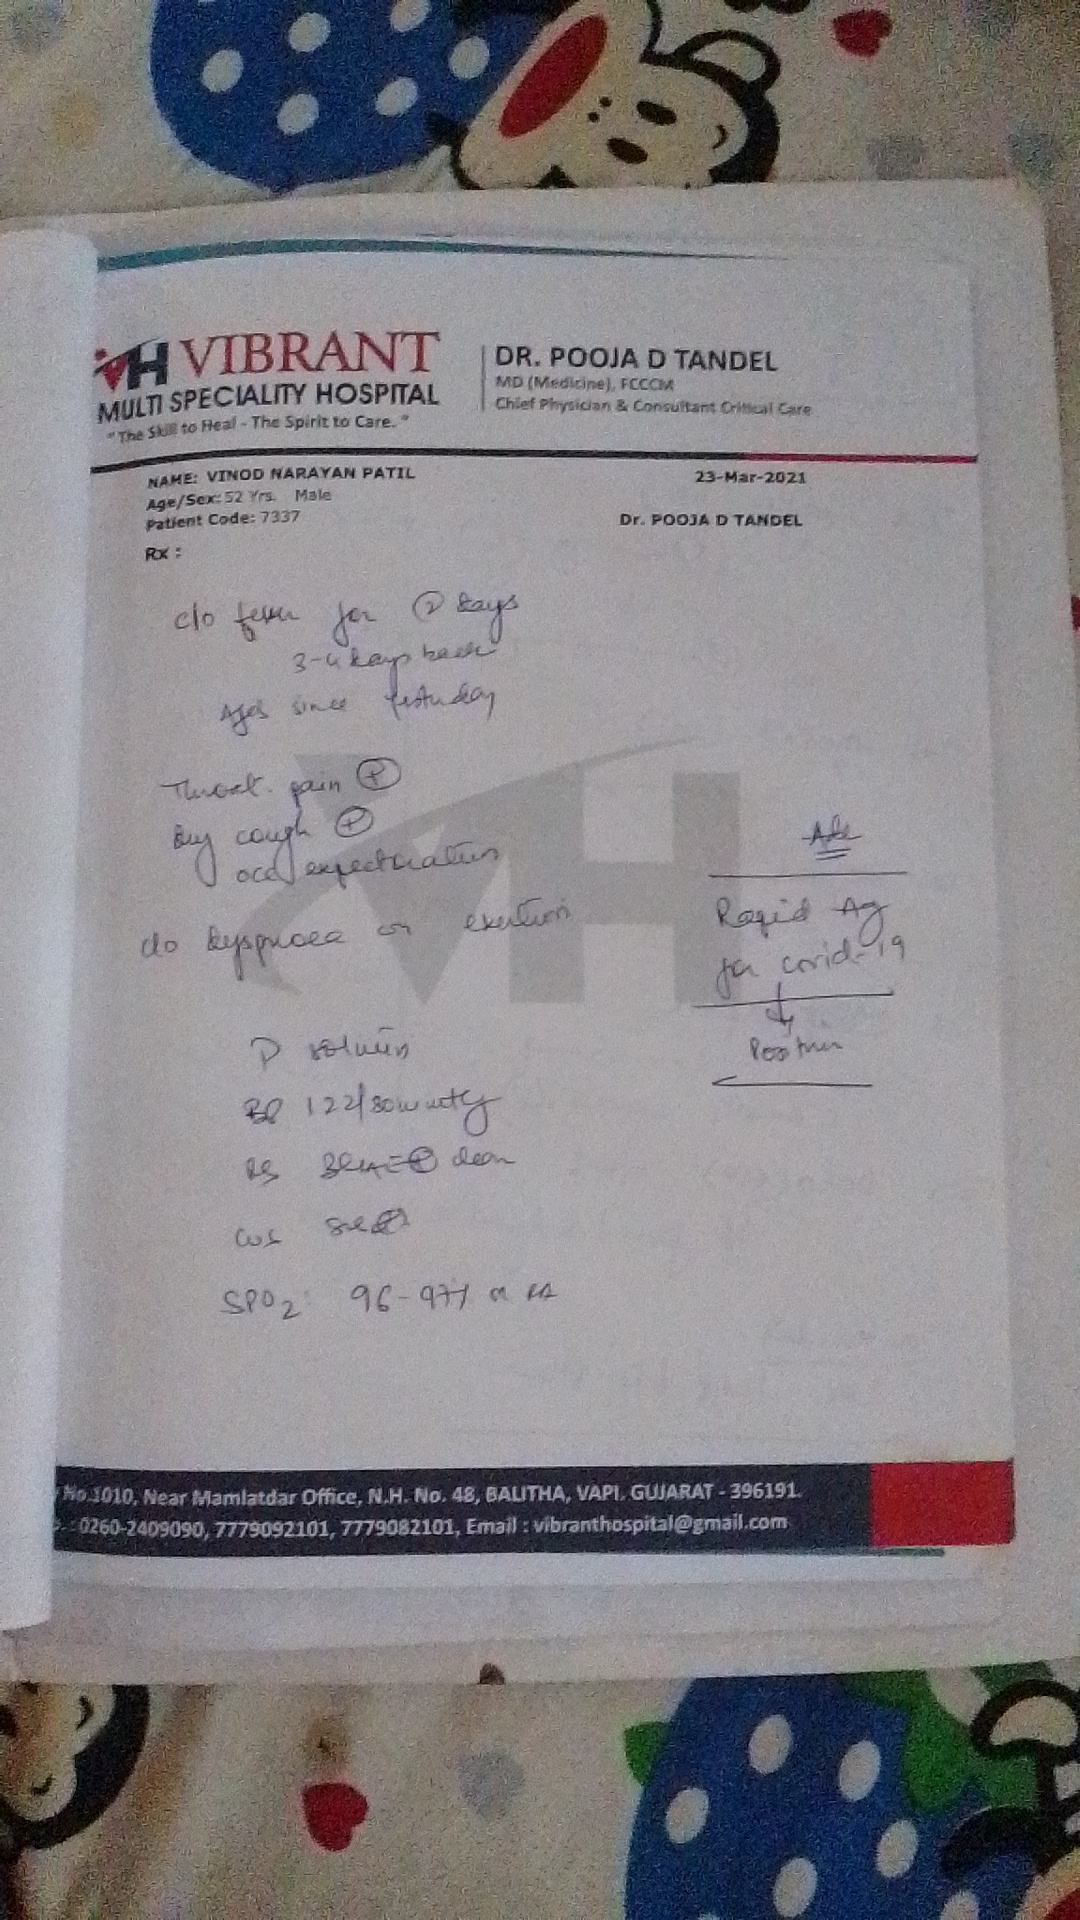 VH VIBRANT
MULTI SPECIALITY HOSPITAL
"The Skill to Heal - The Spirit to Care."
DR. POOJA D TANDEL
MD (Medicine), FCCCM
Chief Physician & Consultant Critical Care
NAME: VINOD NARAYAN PATIL
Age/Sex: 52 Yrs. Male
Patient Code: 7337
23-Mar-2021
Dr. POOJA D TANDEL
Rx :
c/o fever for 2 days
3-4 days back
since yesterday
Throat pain +
Dry cough +
occ expectoration
c/o dyspnoea on exertion
Rapid Ag
for covid-19
Positive
P
BP 122/80
RS clear
CVS
SPO2: 96-97% on RA
VH
No.1010, Near Mamlatdar Office, N.H. No. 48, BALITHA, VAPI. GUJARAT - 396191.
: 0260-2409090, 7779092101, 7779082101, Email : vibranthospital@gmail.com